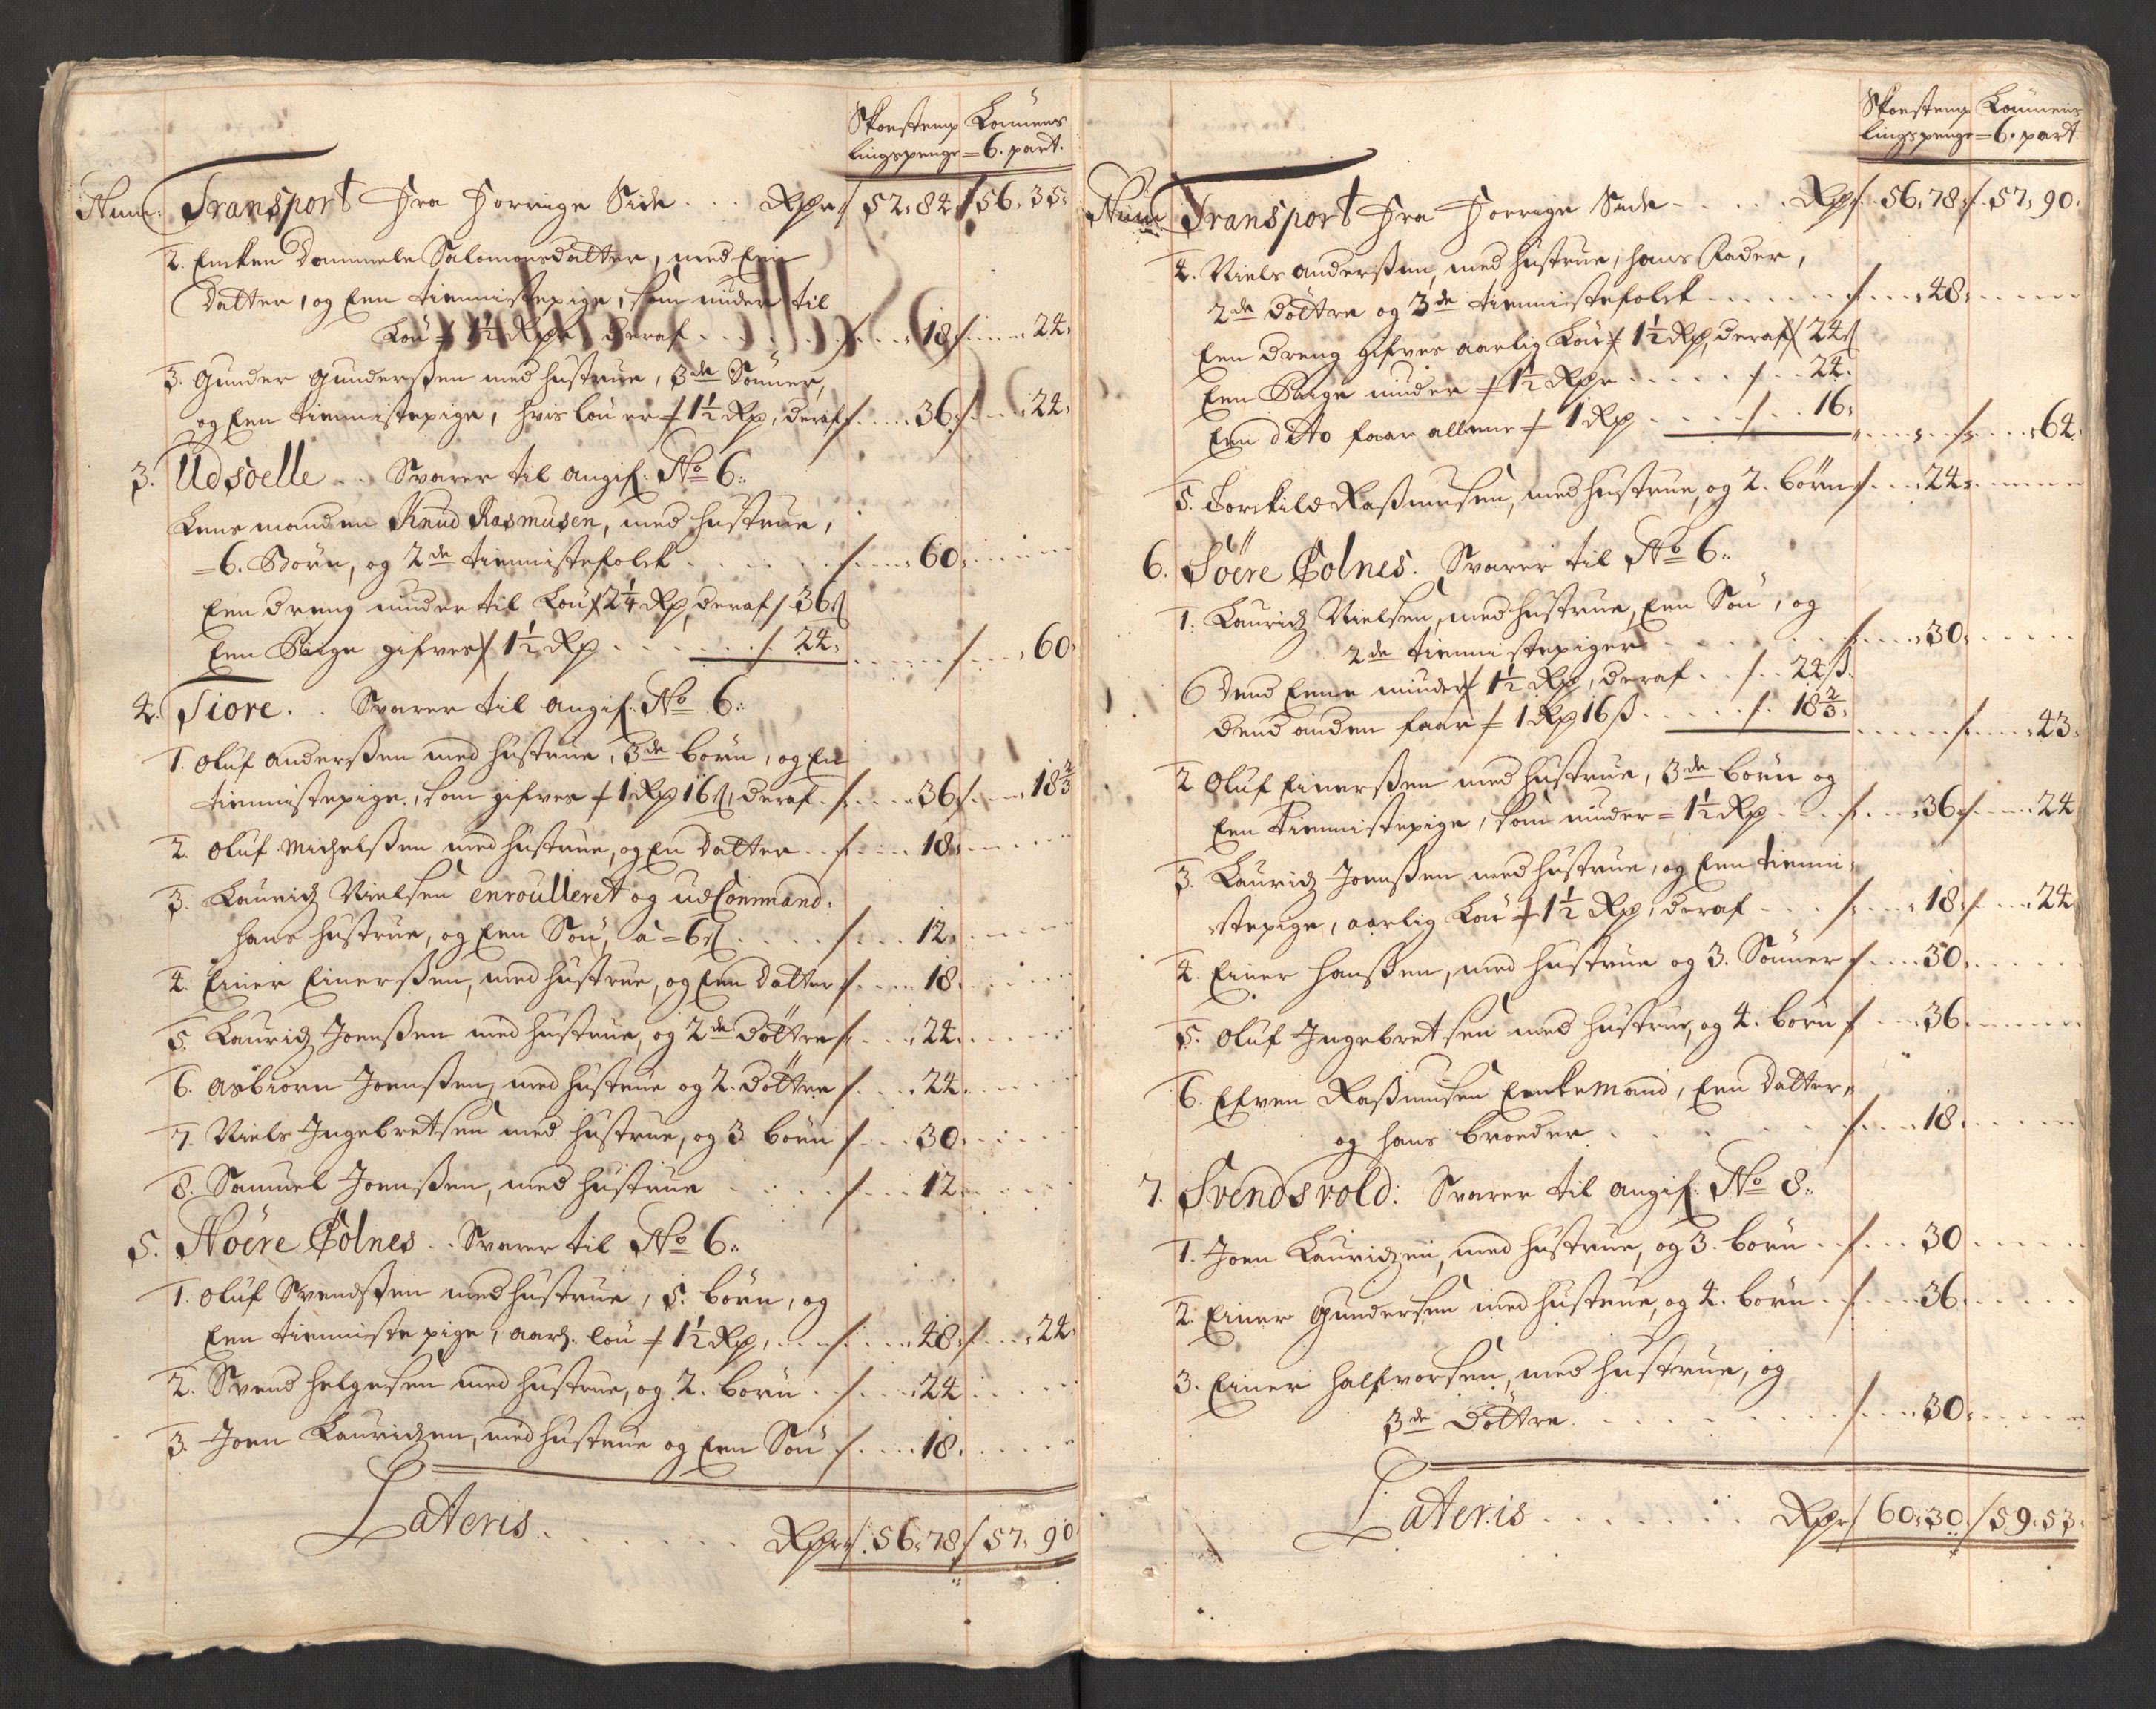 Skoestemp Lønnens
lingspenge = 6. part.
Num: Transport Fra Forrige Side . . . Rdr 52. 84 56. 35.
2. Encken Dammele Salomonsdatter, med Een
Datter, og Een tienniste pige, som nuder til
Løn 1½ Rdr deraf . . . 18. 24.
3. Gunder Gunderssen med hustrue, 3de Sønner,
og Een tiennistepige, hvis løn er 1½ Rd, deraf 36. 24.
3. Udsoelle . . Svarer til angif: No 6.
Lensmanden Knud Rasmusen, med hustrue,
6. Børn, og 2de tiennistefolck . . . 60.
Een dreng nuder til Løn 2¼ Rd, deraf 36 ß
Een Pige gifves 1½ Rd . . . 24. 60.
4. Tiore . . Svarer til angif: No 6.
1. Oluf Anderssen med hustrue, 3de børn, og En
tiennistepige, som gifves 1 Rd 16 ß, deraf . 36. 18⅔
2. Oluf Michelssen med hustrue, og En Datter . . 18.
3. Lauridz Nielsen enroulleret og udCommand:
hans hustrue, og Een Søn, a = 6 ß . . . 12.
4. Einer Einerssen, med hustrue, og Een Datter 18.
5. Lauridz Joenssen med hustrue, og 2de Døttre 24.
6. Asbiorn Joenssen, med hustrue og 2. Døttre 24.
7. Niels Ingebretsen med hustrue, og 3 børn 30.
8. Samuel Joenssen, med hustrue . . . 12.
5. Nöere Colnes . . Svarer til No 6.
1. Oluf Svendssen med hustrue, 5. børn, og
Een tienniste pige, aarl. løn 1½ Rd, . . . 48. 24.
2. Svend Helgesen med hustrue, og 2. børn . . 24
3. Joen Lauridzen, med hustrue og Een Søn . . 18.
Lateris . . . Rdr 56. 78 57. 90
Skoestemp Lønnens
lingspenge = 6. part.
Num Transport Fra Forrige Side . . . Rd 56. 78. 57. 90.
4. Niels Anderssen, med hustrue, hans Fader,
2de døttre og 3de tiennistefolck . . . 48.
Een dreng gifves aarlig Løn 1½ Rd, deraf 24 ß
Een Pige nuder 1½ Rdr . . . 24.
Een dito faar allene 1 Rd . . . 16. 64.
5. Torckild Rassmusen, med hustrue, og 2. børn 24.
6. Söere Colnes. Svarer til No 6.
1. Lauridz Nielsen, med hustrue, Een Søn, og
2de tiennistepiger . . . 30.
Dend Eene nuder 1½ Rd, deraf . . 24 ß.
Dend anden faar 1 Rd 16 ß . . . 18⅔. 43.
2 Oluf Einerssen med hustrue, 3de børn og
Een tiennistepige, som nuder = 1½ Rd . . . 36. 24
3. Lauridz Joenssen med hustrue, og Een tienni-
stepige, aarlig Løn 1½ Rd, deraf . . . 18. 24
4. Einer Hanssen, med hustrue og 3. Sønner 30.
5. Oluf Ingebretsen med hustrue, og 4. børn 36.
6. Efven Rassmusen Enckemand, Een Datter,
og hans broeder . . . 18.
7. Svendsvold. Svarer til angif: No 8.
1. Joen Lauridzen, med hustrue, og 3. børn . . 30
2. Einer Gundersen med hustrue, og 4. børn . . 36.
3. Einer Halfvorsen, med hustrue, og
3de Døttre . . . 30.
Lateris . . . Rdr 60. 30. 59. 53.